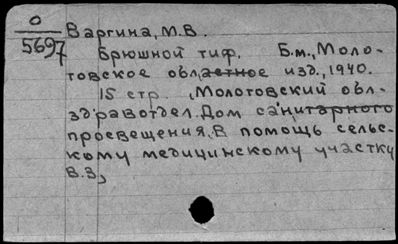 О
5697
Варгина, М.В.
Брюшной тиф. Б.м., Моло-
товское областное изд., 1940.
15 стр. (Молотовский обл-
здравотдел. Дом санитарного
просвещения. В помощь сельс-
кому медицинскому участку
В.3)